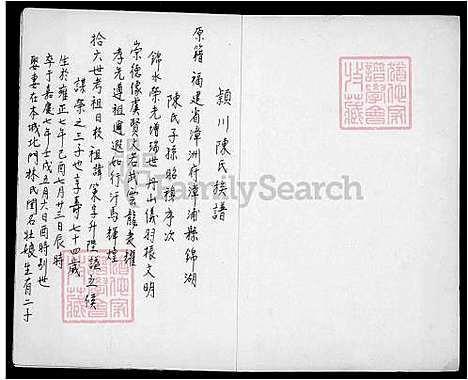 潁川陳氏族譜
原籍福建省漳洲府漳浦縣錦湖
陳氏子孫昭穆序次
錦水榮光增瑞世 丹山儀羽振文明
崇德像虞賢文若武雲龍袞耀
孝先遵祖邇遐如行汗馬輝煌
拾六世考祖日校祖諱 字升陞謚
謀榮之三子也享壽七十四歲
生於雍正七年己酉七月廿三日辰時
卒于嘉慶七年壬戌五月六日酉時別世
娶妻在本城北門林氏閨名壯娘生有二子
FamilySearch